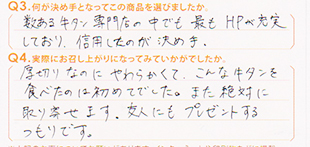 Q3.何が決め手となってこの商品を選びましたか。
数ある牛タン専門店の中でも最もHPが充実
しており、信用したのが決め手。
Q4.実際にお召し上がりになってみていかがでしたか。
厚切りなのにやわらかくて、こんな牛タンを
食べたのは初めてでした。また絶対に
取り寄せます。友人にもプレゼントする
つもりです。